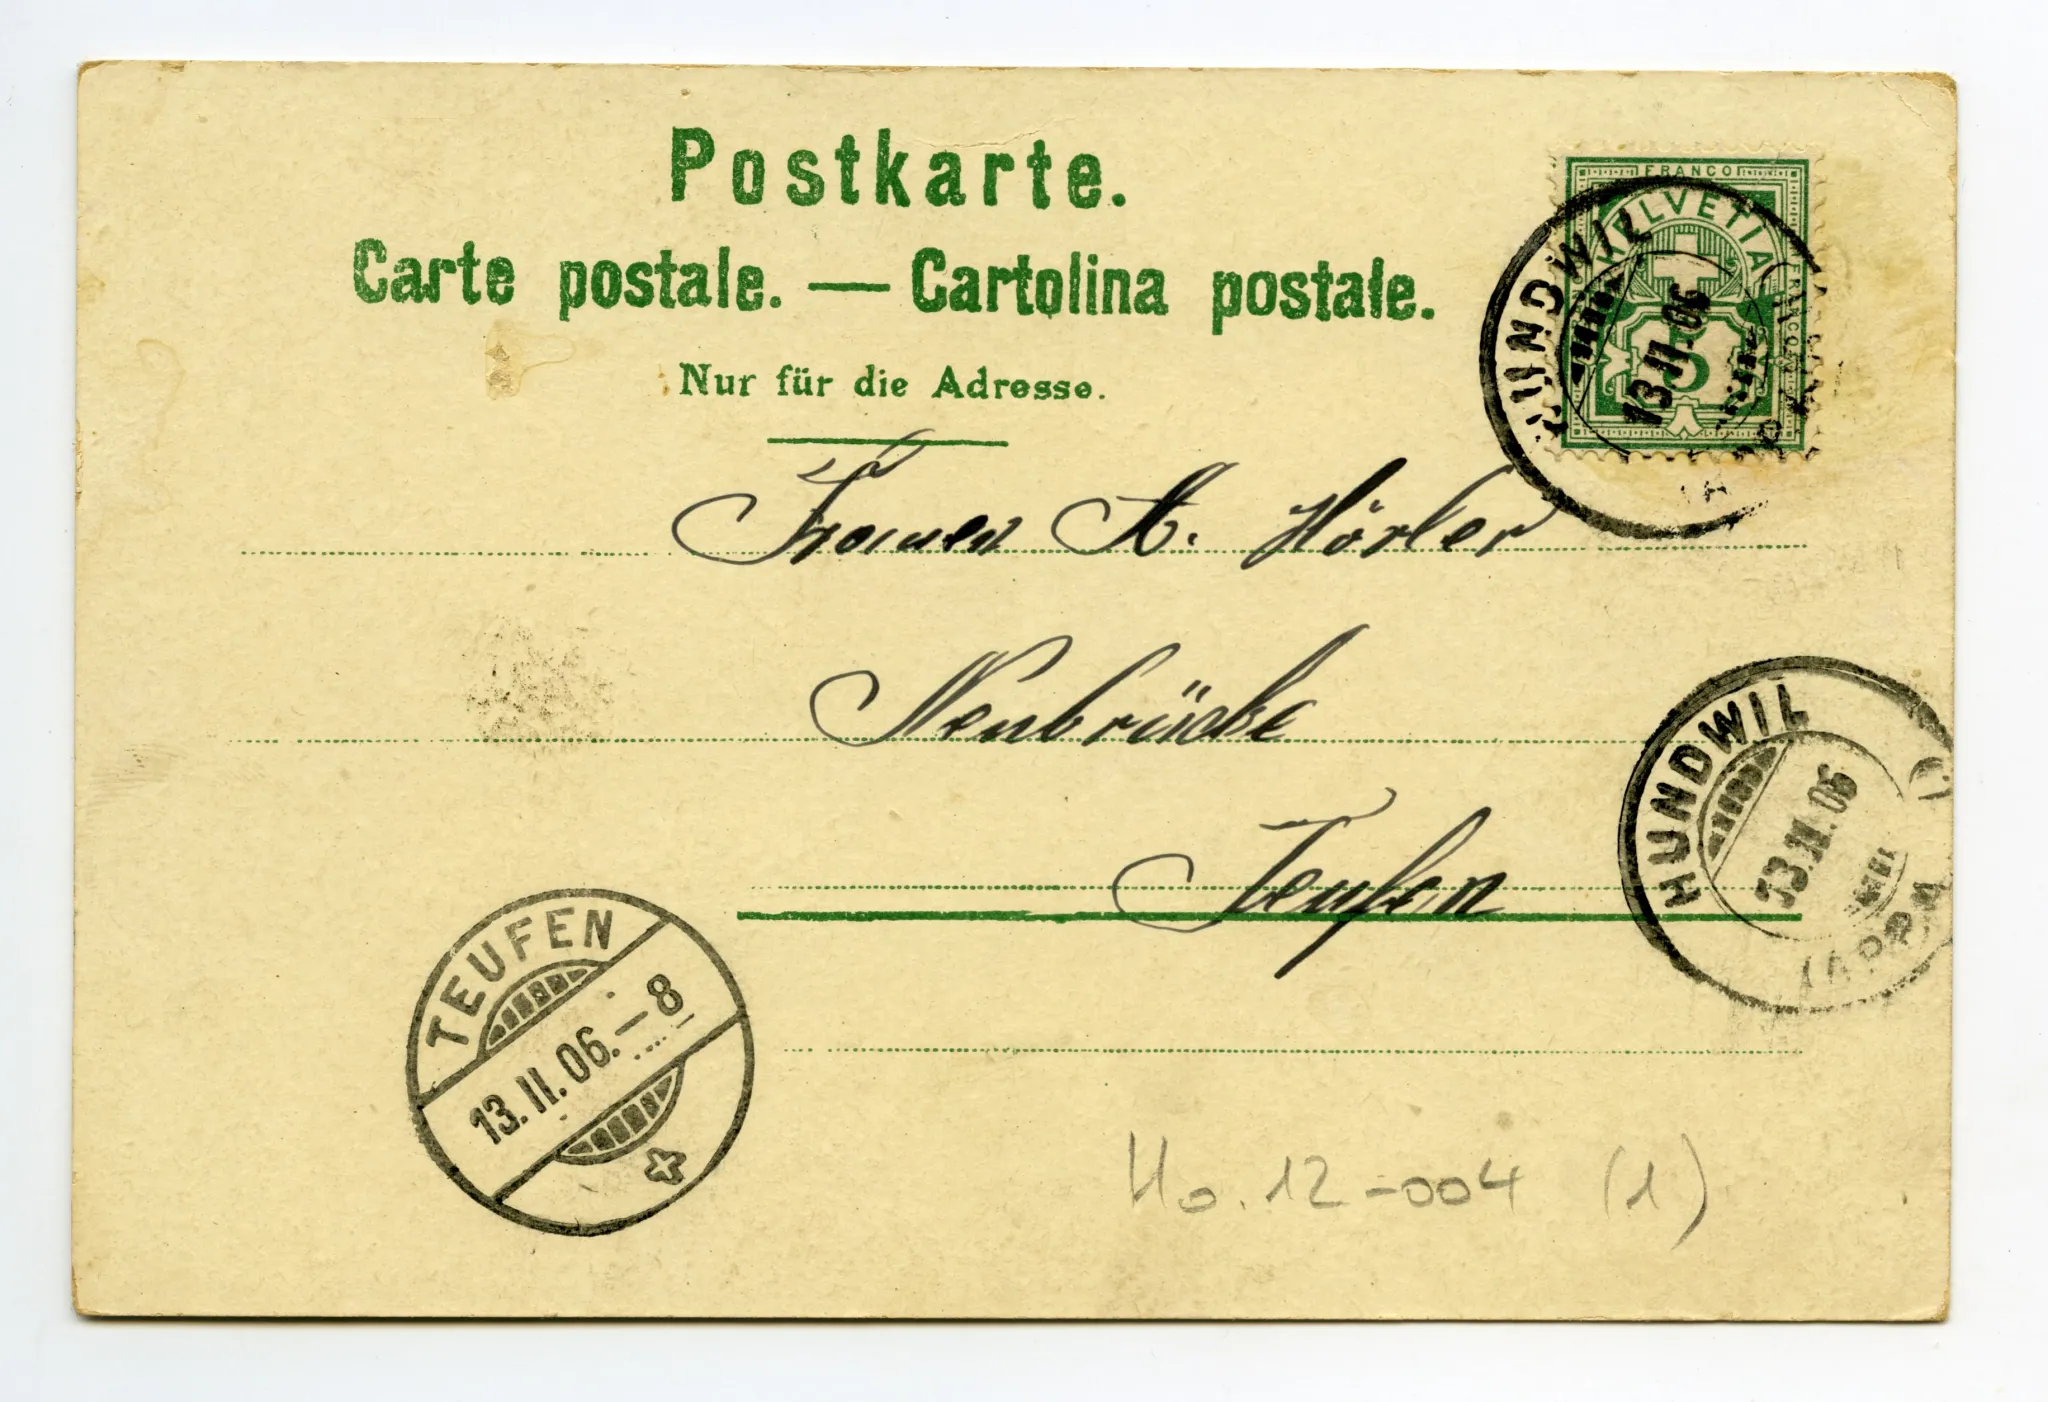 Postkarte.
Carte postale. — Cartolina postale.
Nur für die Adresse.
FRANCO
HELVETIA
FRANCO
5
HUNDWIL
13.II.06
A. Hörler
Neubrücke
Teufen
HUNDWIL
13.II.06
(APPA
TEUFEN
13.II.06.–8
Ho. 12-004 (1)